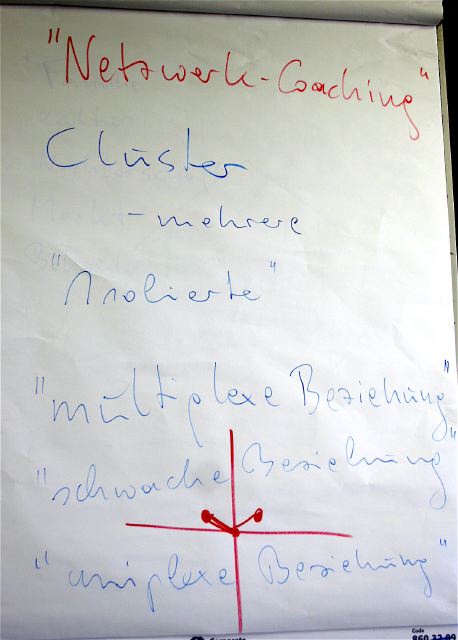 "Netzwerk-Coaching"
Cluster
Markt-mehrere
"Isolierte"
"multiplexe Beziehung"
"schwache Beziehung"
"uniplexe Beziehung"
Code